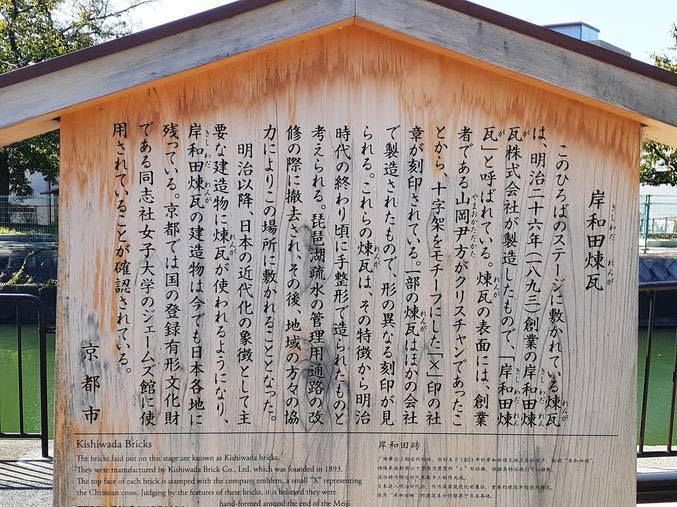 岸和田煉瓦
このひろばのステージに敷かれている煉瓦
は、明治二十六年（一八九三）創業の岸和田煉
瓦株式会社が製造したもので、「岸和田煉
瓦」と呼ばれている。煉瓦の表面には、創業
者である山岡尹方がクリスチャンであったこ
とから、十字架をモチーフにした「×」印の社
章が刻印されている。一部の煉瓦はほかの会社
で製造されたもので、形の異なる刻印が見
られる。これらの煉瓦は、その特徴から明治
時代の終わり頃に手整形で造られたものと
考えられる。琵琶湖疏水の管理用通路の改
修の際に撤去され、その後、地域の方々の協
力によりこの場所に敷かれることとなった。
明治以降、日本の近代化の象徴として主
要な建造物に煉瓦が使われるようになり、
岸和田煉瓦の建造物は今でも日本各地に
残っている。京都では国の登録有形文化財
である同志社女子大学のジェームズ館に使
用されていることが確認されている。
京都市
Kishiwada Bricks
The bricks laid out on this stage are known as Kishiwada bricks.
They were manufactured by Kishiwada Brick Co., Ltd, which was founded in 1893.
The top face of each brick is stamped with the company emblem, a small "X" representing
the Christian cross. Judging by the features of these bricks, it is believed they were
hand-formed around the end of the Meiji
岸和田砖